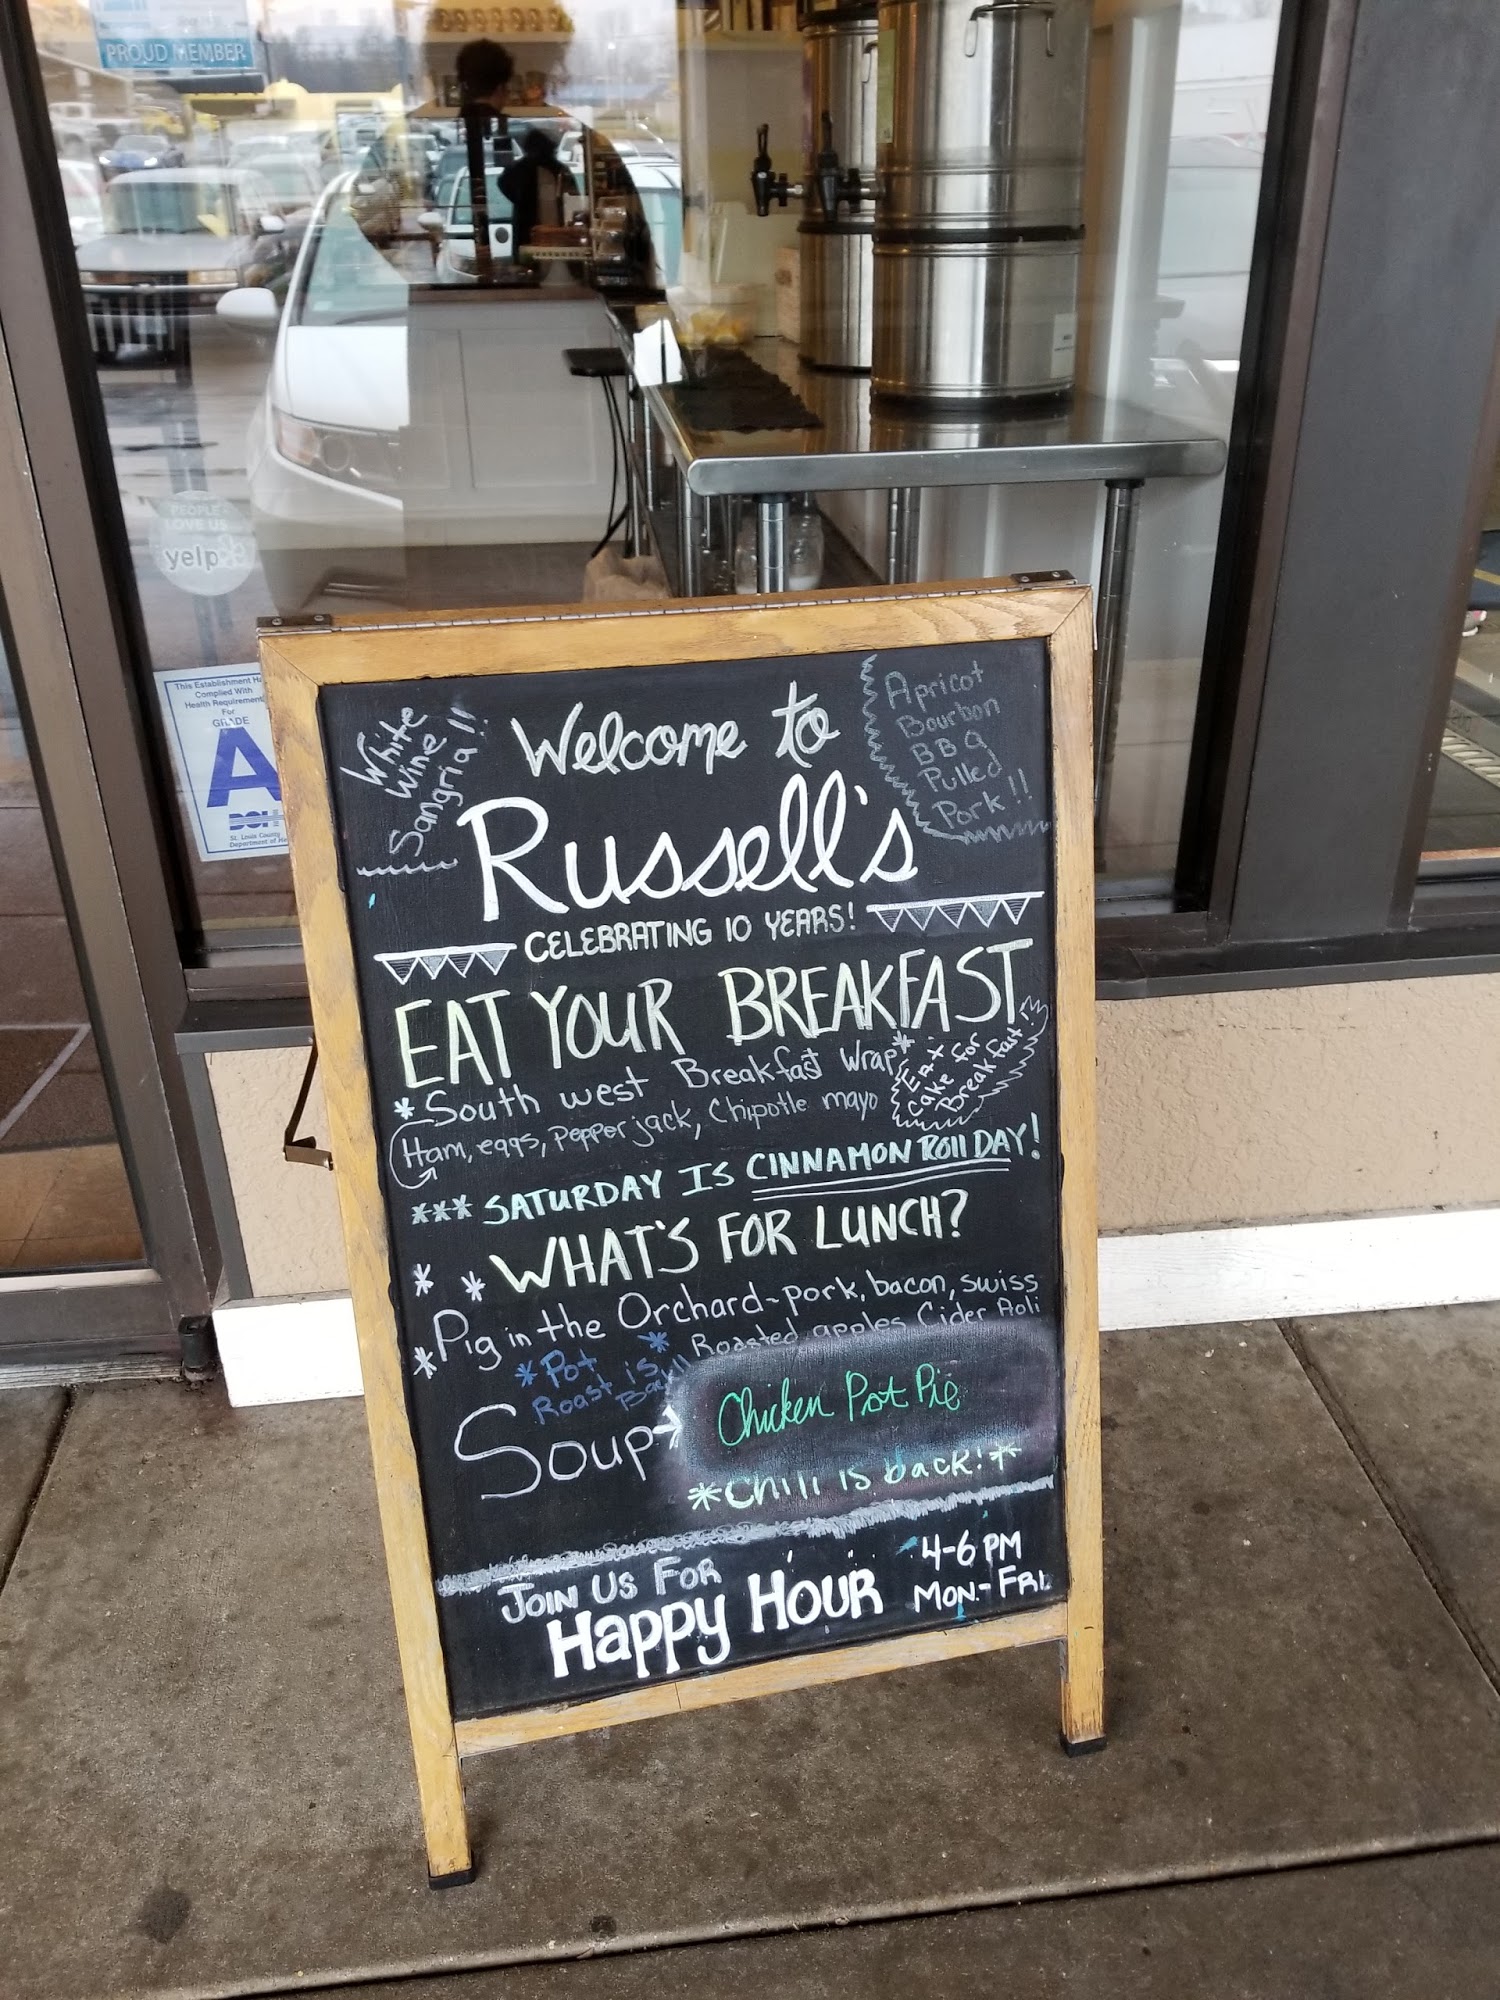 PROUD MEMBER
PEOPLE
LOVE US
yelp
This Establishment Ha
Complied With
Health Requirement
For
GRADE
A
DOH
St. Louis County
Department of He
White
Wine
Sangria!!
Welcome to
Russell's
Apricot
Bourbon
BBQ
Pulled
Pork!!
CELEBRATING 10 YEARS!
EAT YOUR BREAKFAST
*South west Breakfast Wrap*
Ham, eggs, Pepper jack, Chipotle mayo
EAT
Cake for
Breakfast!
*** SATURDAY IS CINNAMON ROll DAY!
* * WHAT'S FOR LUNCH?
*Pig in the Orchard-pork, bacon, swiss
Roasted apples Cider Aoli
*Pot *
Roast is
Back!!
Soup→
Chicken Pot Pie
*Chili is back!*
JOIN US FOR
HAPPY HOUR
4-6 PM
MON.-FRI